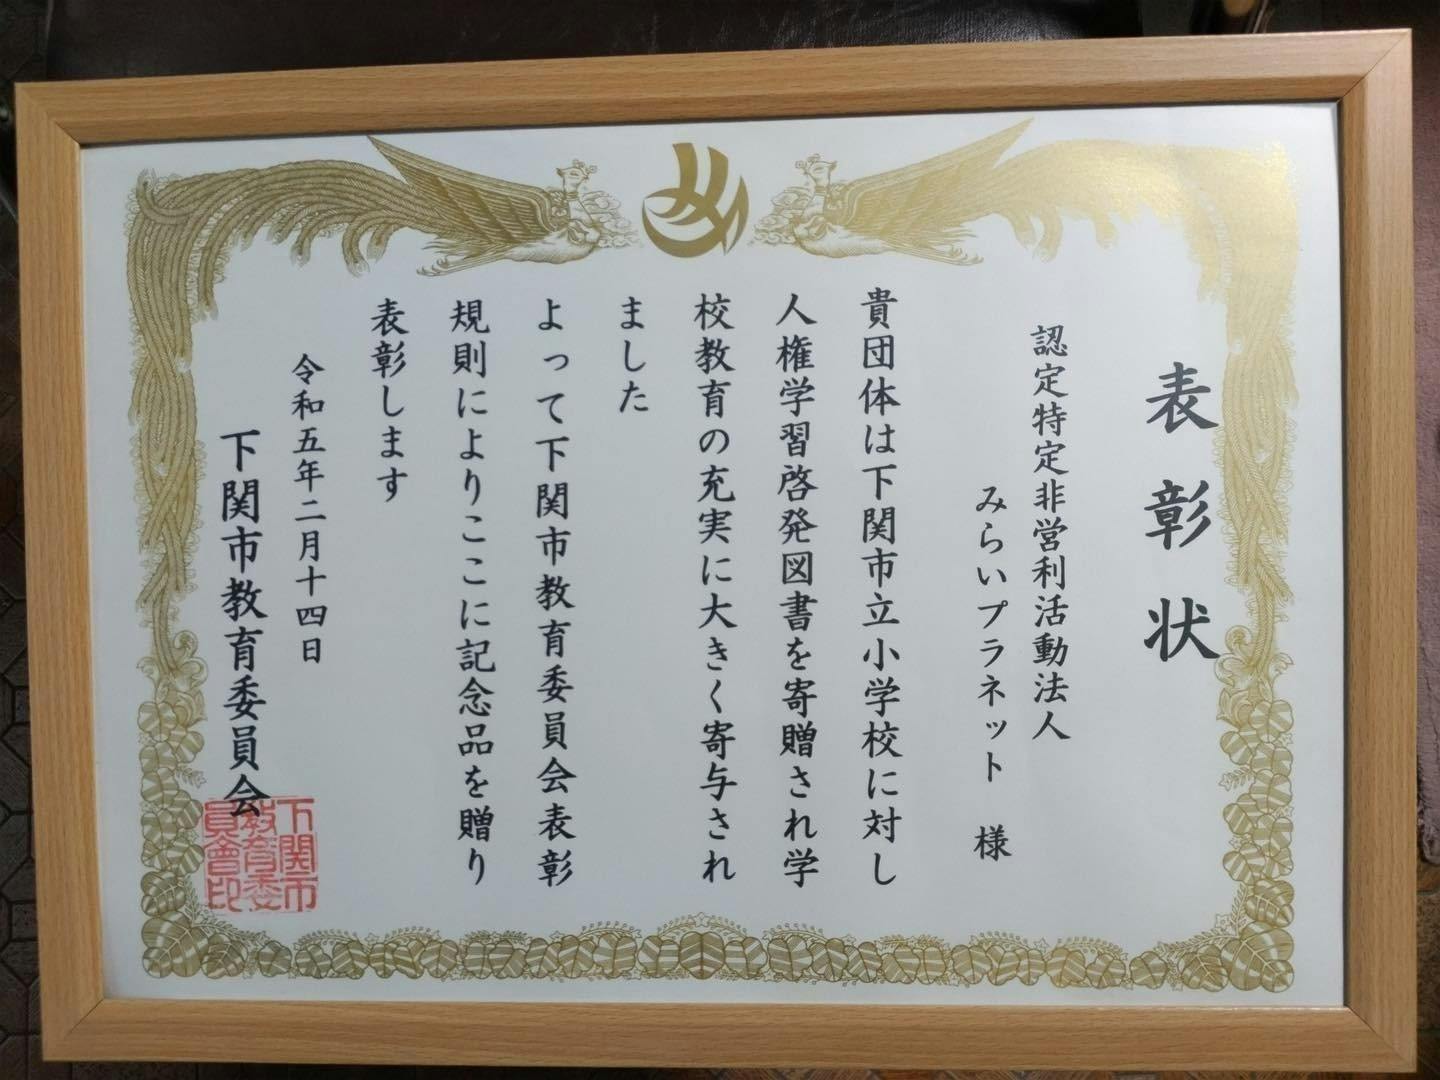 表彰状
認定特定非営利活動法人
みらいプラネット 様
貴団体は下関市立小学校に対し
人権学習啓発図書を寄贈され学
校教育の充実に大きく寄与され
ました
よって下関市教育委員会表彰
規則によりここに記念品を贈り
表彰します
令和五年二月十四日
下関市教育委員会
下関市
教育委
員會印